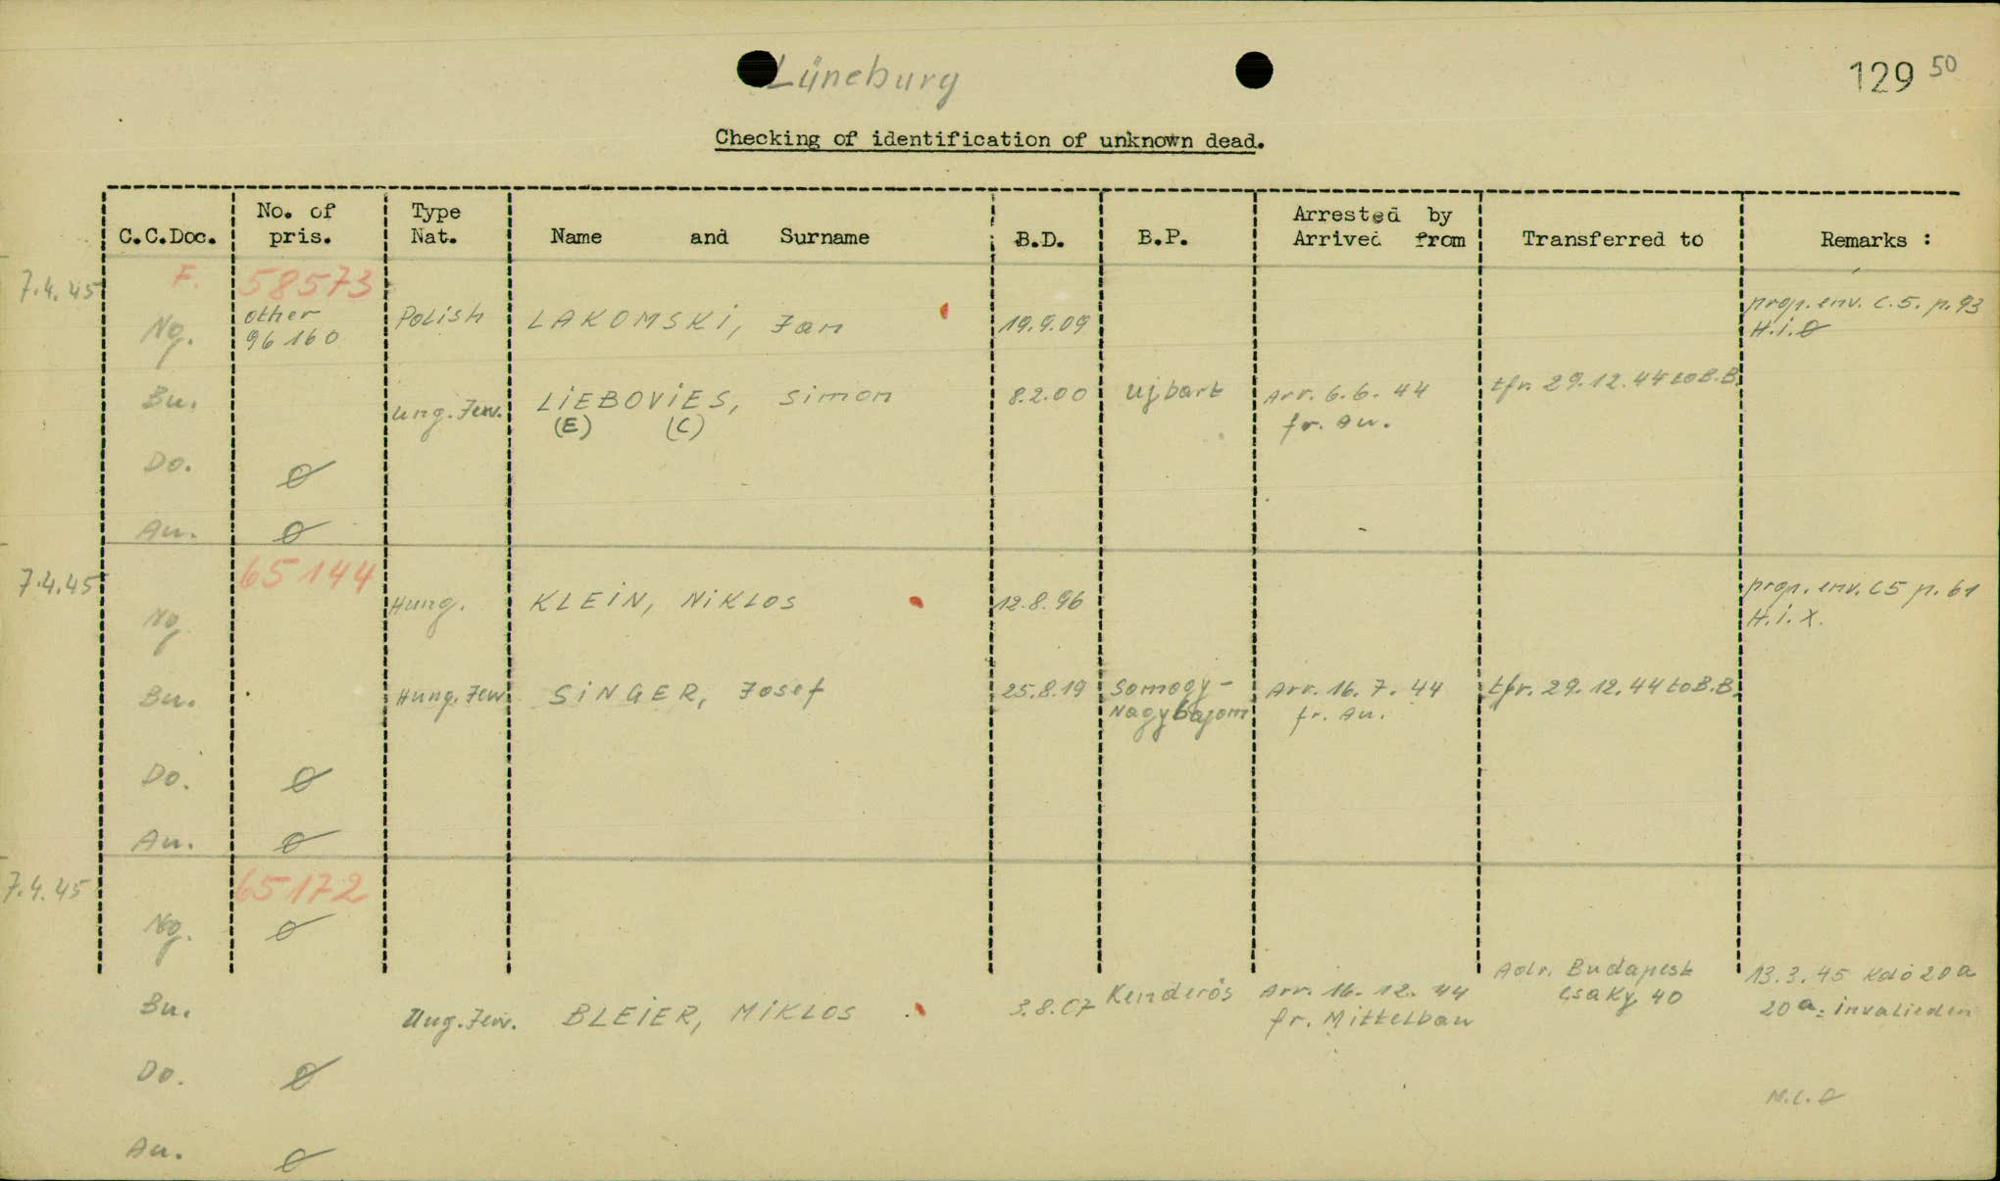 Lüneburg
129 50
Checking of identification of unknown dead.
C.C.Doc. No. of pris. Type Nat. Name and Surname B.D. B.P. Arrested by Arrived from Transferred to Remarks :
7.4.45 F. 58573
Ng. other 96160 Polish LAKOMSKI, Jan 19.9.09 prop. env. C.5. p.93
H.i.ø
Bu. Ung. Jew. LIEBOVIES, Simon 8.2.00 Ujbart Arr. 6.6.44 tfr. 29.12.44 to B.B.
(E) (C) fr. Au.
Do. ø
Au. ø
7.4.45 65144
Ng. Hung. KLEIN, NIKLOS 12.8.96 prop. env. C5 p.61
H.i.X.
Bu. Hung. Jew SINGER, Josef 25.8.19 Somogy- Arr. 16.7.44 tfr. 29.12.44 to B.B.
Nagybajom fr. Au.
Do. ø
Au. ø
7.4.45 65172
Ng. ø
Bu. Ung. Jew. BLEIER, MIKLOS 3.8.07 Kenderös Arr. 16.12.44 Adr. Budapest 13.3.45 Kdo 20a
fr. Mittelbau Csaky 40 20a: invalieden
Do. ø
N.C.ø
Au. ø